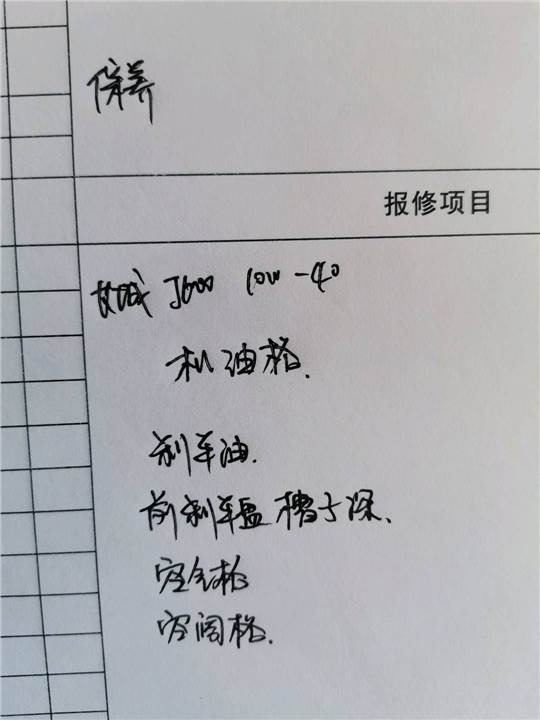 保养
报修项目
J600 10W-40
机油格.
刹车油.
前刹车盘槽子深.
空气格
空调格.